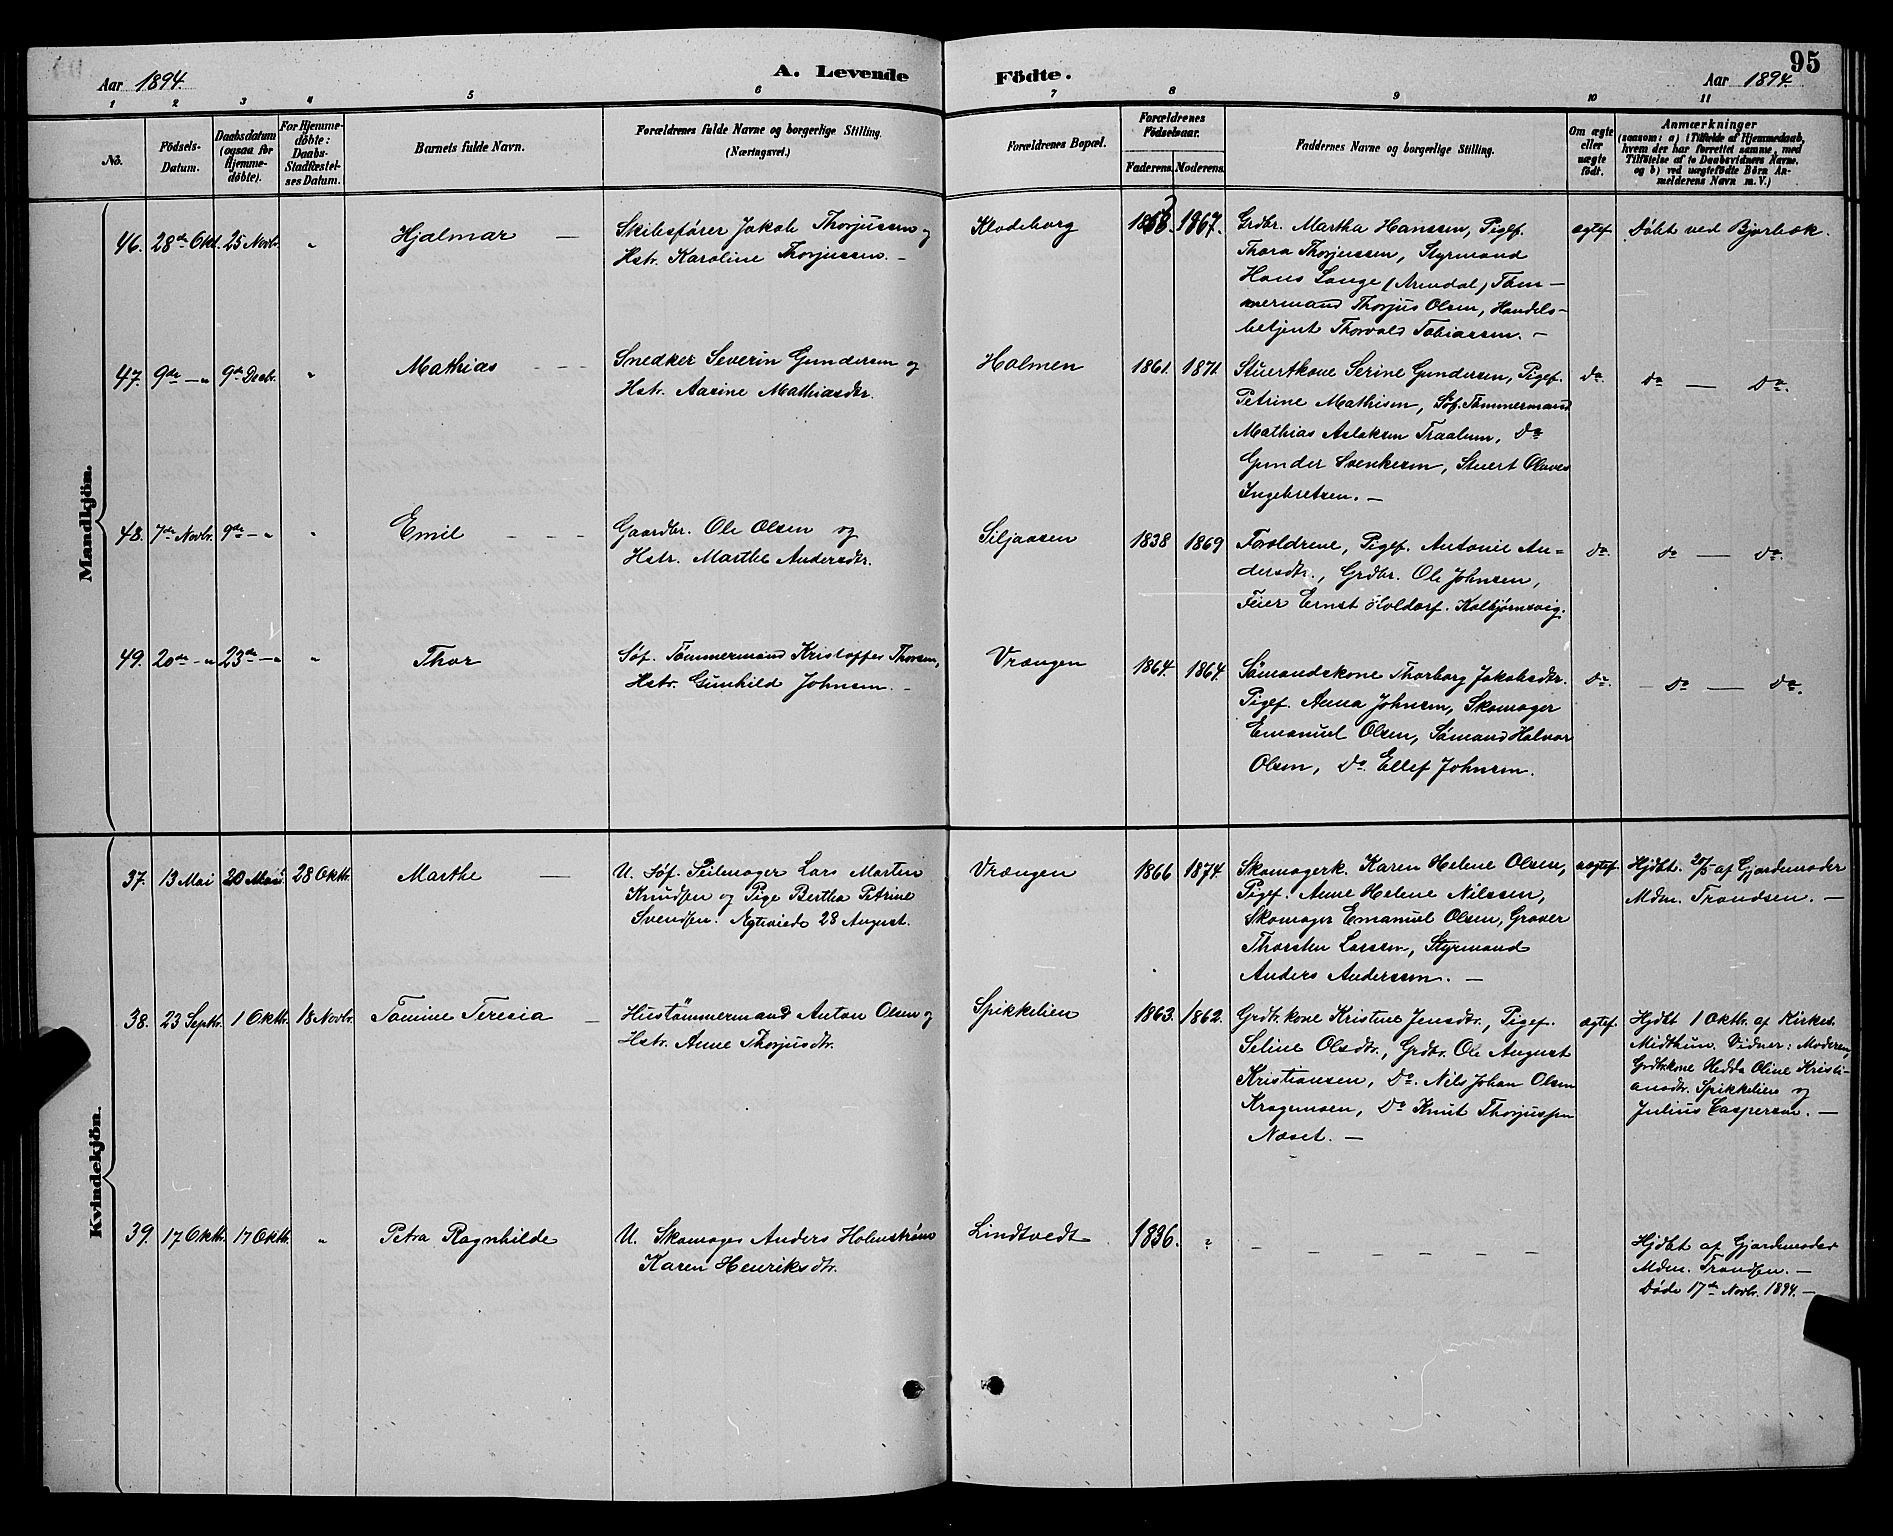 95
Aar 1894.
A. Levende Födte.
Aar 1894.
1 2 3 4 5 6 7 8 9 10 11
No.
Födsels-Datum.
Daabsdatum (ogsaa for Hjemme-döbte).
For Hjemme-döbte: Daabs-Stadfæstel-ses Datum.
Barnets fulde Navn.
Forældrenes fulde Navne og borgerlige Stilling.
(Næringsvei.)
Forældrenes Bopæl.
Forældrenes Födselsaar.
Faderens.
Moderens.
Faddernes Navne og borgerlige Stilling.
Om ægte eller uægte født.
Anmærkninger
(saasom: a) i Tilfælde af Hjemmedaab,
hvem der har forrettet samme, med
Tilföielse af to Daabsvidners Navne.
og b) ved uægtefödte Börn An-
melderens Navn m. V.)
Mandkjön.
46. 28de Okt. 25 Novbr. " Hjalmar —
Skibsfører Jakob Thorjussen og
Hstr. Karoline Thorjussen. –
Klodeborg 1868. 1867.
Grdbr. Martha Hanssen, Pigef.
Thora Thorjussen, Styrmand
Hans Lange (Arendal) Töm–
mermand Thorjus Olsen, Handels-
betjent Thorvald Tobiassen. –
ægtef. Døbt ved Bjorbæk.
47. 9de –" 9de Decbr. " Mathias – – –
Snedker Severin Gundersen og
Hstr. Aasine Mathiasdtr.
Holmen 1861. 1871.
Stuertkone Serine Gundersen, Pigef.
Petrine Mathisen, Søf. Tømmermand
Mathias Aslaksen Traalum, Do
Gunder Svenkesen, Stuert Olaves
Ingebretsen. –
do. do — do.
48. 7de Novbr. 9de –" " Emil – – –
Gaardbr. Ole Olsen og
Hstr. Marthe Andersdtr.
Siljaasen 1838 1869
Forældrene, Pigef. Antonie An=
dersdtr., Grdbr. Ole Johnsen,
Feier Ernst Holdorf. Kolbjørnsvig.
do. do — do.
49. 20de –" 23de –" " Thor
Søf. Tømmermand Kristoffer Thorsen,
Hstr. Gunhild Johnsen. –
Vrængen 1864. 1864.
Sömandskone Thorborg Jakobsdtr.
Pigef. Anna Johnsen, Skomager
Emanuel Olsen, Sömand Halvor
Olsen, Do. Ellef Johnsen.
do. – do — do.
Kvindekjön.
37. 13 Mai 20 Mai 28 Oktb. Marthe —
U. Søf. Seilmager Lars Martin
Knudsen og Pige Bertha Petrine
Svendsen. Ægteviede 28 August.
Vrængen 1866 1874
Skomagerk. Karen Helene Olsen,
Pigef. Anne Helene Nilssen,
Skomager Emanuel Olsen, Graver
Thorsten Larssen, Styrmand
Anders Anderssen. –
uægtef. Hjdbt. 20/5 af Gjordemoder
Mdm. Trondsen. –
38. 23 Septbr. 1 Oktb. 18 Novbr. Tomine Teresia –
Hustömmermand Anton Olsen og
Hstr. Anne Thorjusdtr.
Spikkelien 1863. 1862.
Grdbr.kone Kristine Jensdtr., Pigef.
Seline Olsdtr., Grdbr. Ole August
Kristiansen, Do. Nils Johan Olsen
Kragemoen, Do Knut Thorjussen
Næset. –
ægtef. Hjdbt 1 Oktbr. af Kirkes.
Midthun. Vidner: Moderen,
Grdbr.kone Hedda Oline Kristi-
ansdtr. Spikkelien og
Julius Caspersen. –
39. 17 Oktb. 17 Oktb. " Petra Ragnhilde
U. Skomager Anders Holmstrøm
Karen Henriksdtr.
Lindtvedt 1836. ? – – – – – – –
Hjdbt af Gjordemoder
Mdm. Trondsen. –
Døde 17de Novbr. 1894. –